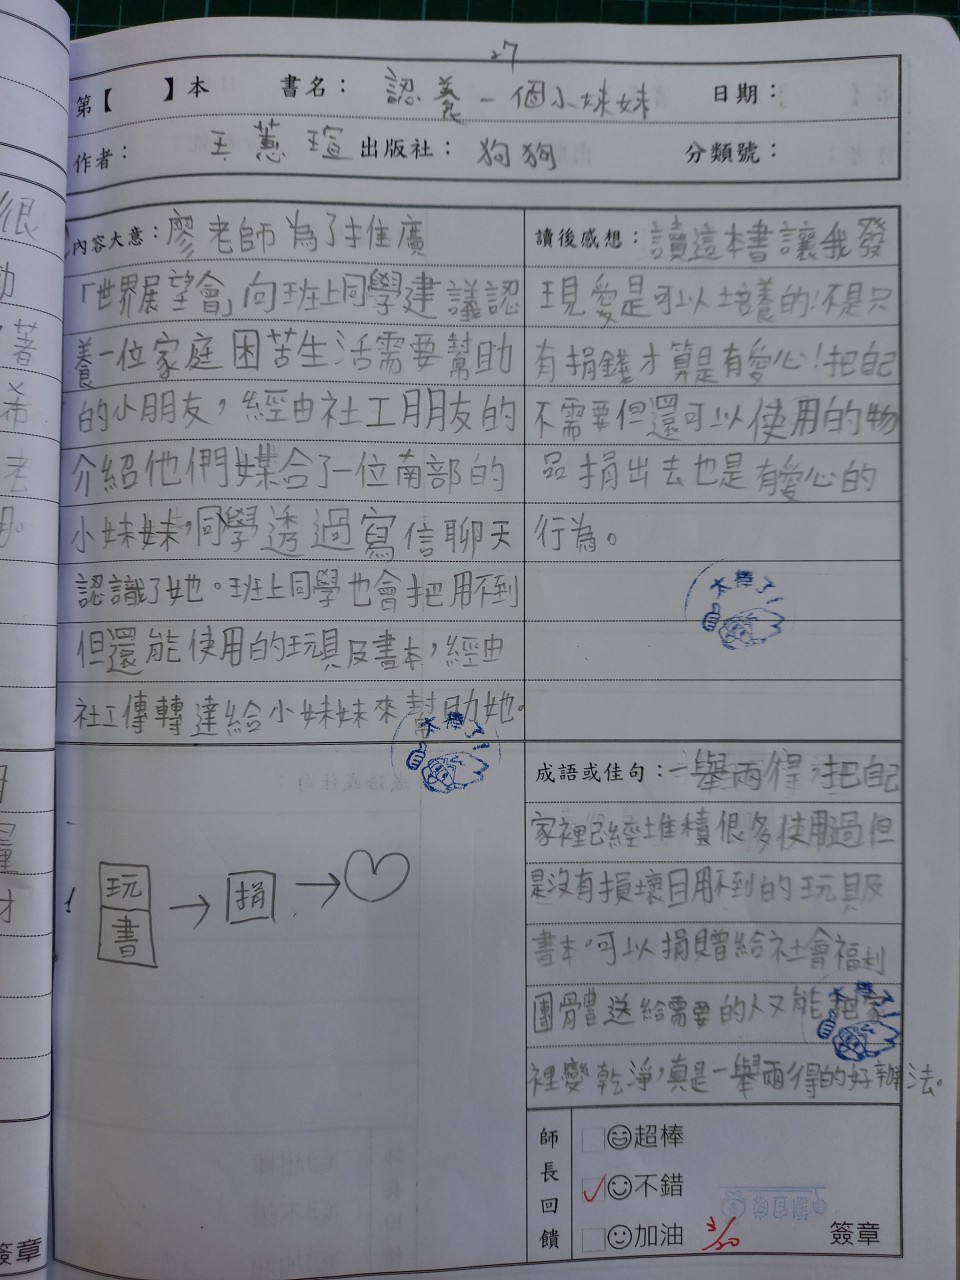 27
第【 】本 書名： 認養一個小妹妹 日期：
作者： 王蕙瑄 出版社： 狗狗 分類號：
內容大意：廖老師為了推廣
「世界展望會」向班上同學建議認
養一位家庭困苦生活需要幫助
的小朋友，經由社工朋友的
介紹他們媒合了一位南部的
小妹妹，同學透過寫信聊天
認識了她。班上同學也會把用不到
但還能使用的玩具及書本，經由
社工傳轉達給小妹妹來幫助她。
太棒了!
讀後感想：讀這本書讓我發
現愛是可以培養的！不是只
有捐錢才算是有愛心！把自己
不需要但還可以使用的物
品捐出去也是有愛心的
行為。
太棒了!
玩
書
捐
成語或佳句：一舉兩得：把自己
家裡已經堆積很多使用過但
是沒有損壞且用不到的玩具及
書本。可以捐贈給社會福利
團體送給需要的人又能把家
裡變乾淨，真是一舉兩得的好辦法。
太棒了!
師長回饋
超棒
不錯
加油
3/20
簽章
很
著
希
老
用。
量
才
簽章